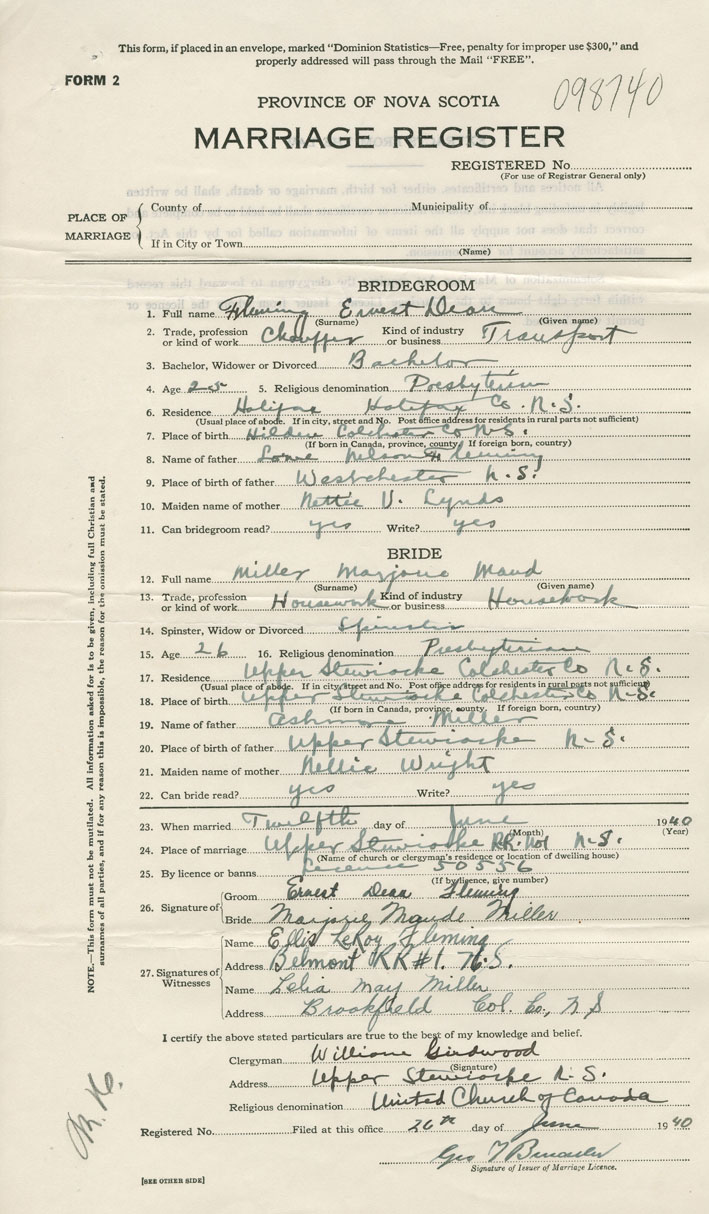 This form, if placed in an envelope, marked "Dominion Statistics—Free, penalty for improper use $300," and
properly addressed will pass through the Mail "FREE".
FORM 2
098740
PROVINCE OF NOVA SCOTIA
MARRIAGE REGISTER
REGISTERED No.
(For use of Registrar General only)
PLACE OF MARRIAGE
County of Municipality of
If in City or Town
(Name)
BRIDEGROOM
1. Full name Fleming Ernest Dean
(Surname) (Given name)
2. Trade, profession or kind of work Chauffer Kind of industry or business Transport
3. Bachelor, Widower or Divorced Bachelor
4. Age 25 5. Religious denomination Presbyterian
6. Residence Halifax Halifax Co. N.S.
(Usual place of abode. If in city, street and No. Post office address for residents in rural parts not sufficient)
7. Place of birth Hilden Colchester Co N.S.
(If born in Canada, province, county. If foreign born, country)
8. Name of father Lowe Nelson Fleming
9. Place of birth of father Westchester N.S.
10. Maiden name of mother Nettie V. Lynds
11. Can bridegroom read? yes Write? yes
BRIDE
12. Full name Miller Marjorie Maud
(Surname) (Given name)
13. Trade, profession or kind of work Housework Kind of industry or business Housework
14. Spinster, Widow or Divorced Spinster
15. Age 26 16. Religious denomination Presbyterian
17. Residence Upper Stewiacke Colchester Co N.S.
(Usual place of abode. If in city, street and No. Post office address for residents in rural parts not sufficient)
18. Place of birth Upper Stewiacke Colchester Co N.S.
(If born in Canada, province, county. If foreign born, country)
19. Name of father Ashmore Miller
20. Place of birth of father Upper Stewiacke N.S.
21. Maiden name of mother Nellie Wright
22. Can bride read? yes Write? yes
23. When married Twelfth day of June 1940
(Month) (Year)
24. Place of marriage Upper Stewiacke RR. No1 N.S.
(Name of church or clergyman's residence or location of dwelling house)
25. By licence or banns Licence 50556
(If by licence, give number)
26. Signature of Groom Ernest Dean Fleming
Bride Marjorie Maude Miller
27. Signatures of Witnesses
Name Ellis LeRoy Fleming
Address Belmont RR#1. N.S.
Name Lelia May Miller
Address Brookfield Col. Co., N S
I certify the above stated particulars are true to the best of my knowledge and belief.
Clergyman William Girdwood
(Signature)
Address Upper Stewiacke N.S.
Religious denomination United Church of Canada
Registered No. Filed at this office 26th day of June 1940
Geo T
Signature of Issuer of Marriage Licence.
[SEE OTHER SIDE]
NOTE.—This form must not be mutilated. All information asked for is to be given, including full Christian and
surnames of all parties, and if for any reason this is impossible, the reason for the omission must be stated.